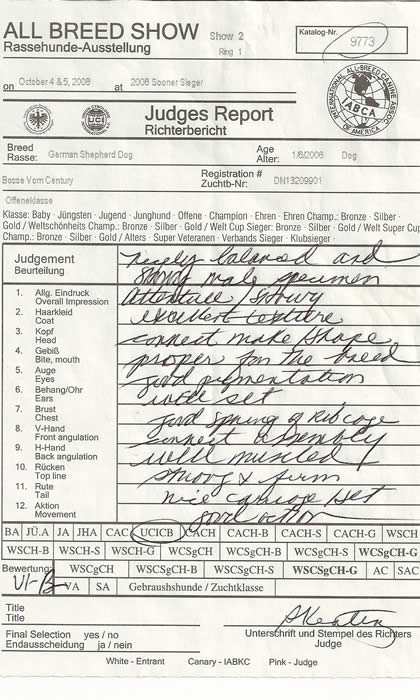 ALL BREED SHOW
Rassehunde-Ausstellung
Show 2
Ring 1
Katalog-Nr.
9773
INTERNATIONAL ALL-BREED CANINE ASSOC. OF AMERICA
IABCA
on October 4 & 5, 2008 at 2008 Sooner Sieger
UCI
Judges Report
Richterbericht
Breed
Rasse: German Shepherd Dog
Age
Alter: 1/6/2006 Dog
Bosse Vom Century
Registration #
Zuchtb-Nr: DN13209901
Offeneklasse
Klasse: Baby · Jüngsten · Jugend · Junghund · Offene · Champion · Ehren · Ehren Champ.: Bronze · Silber ·
Gold / Weltschönheits Champ.: Bronze · Silber · Gold / Welt Cup Sieger: Bronze · Silber · Gold / Welt Super Cup
Champ.: Bronze · Silber · Gold / Alters · Super Veteranen · Verbands Sieger · Klubsieger ·
Judgement
Beurteilung
nicely balanced and
strong male specimen
1. Allg. Eindruck
Overall Impression
attentive / showy
2. Haarkleid
Coat
excellent texture
3. Kopf
Head
correct make / shape
4. Gebiß
Bite, mouth
proper for the breed
5. Auge
Eyes
good pigmentation
6. Behang/Ohr
Ears
well set
7. Brust
Chest
good spring of rib cage
8. V-Hand
Front angulation
correct assembly
9. H-Hand
Back angulation
well muscled
10. Rücken
Top line
strong & firm
11. Rute
Tail
nice carriage set
12. Aktion
Movement
good action
BA JÜ.A JA JHA CAC UCICB CACH CACH-B CACH-S CACH-G WSCH
WSCH-B WSCH-S WSCH-G WCSgCH WCSgCH-B WCSgCH-S WCSgCH-G
Bewertung: WSCgCH WSCgCH-B WSCgCH-S WSCgCH-G AC SAC
V1-B VA SA Gebraushunde / Zuchtklasse
Title
Title
Final Selection yes / no
Endausscheidung ja / nein
Unterschrift und Stempel des Richters
Judge
White - Entrant Canary - IABKC Pink - Judge